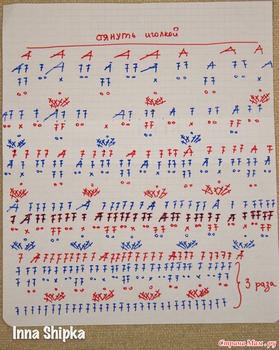 стянуть иголкой
3 раза
Inna Shipka
Страна Мам.ру